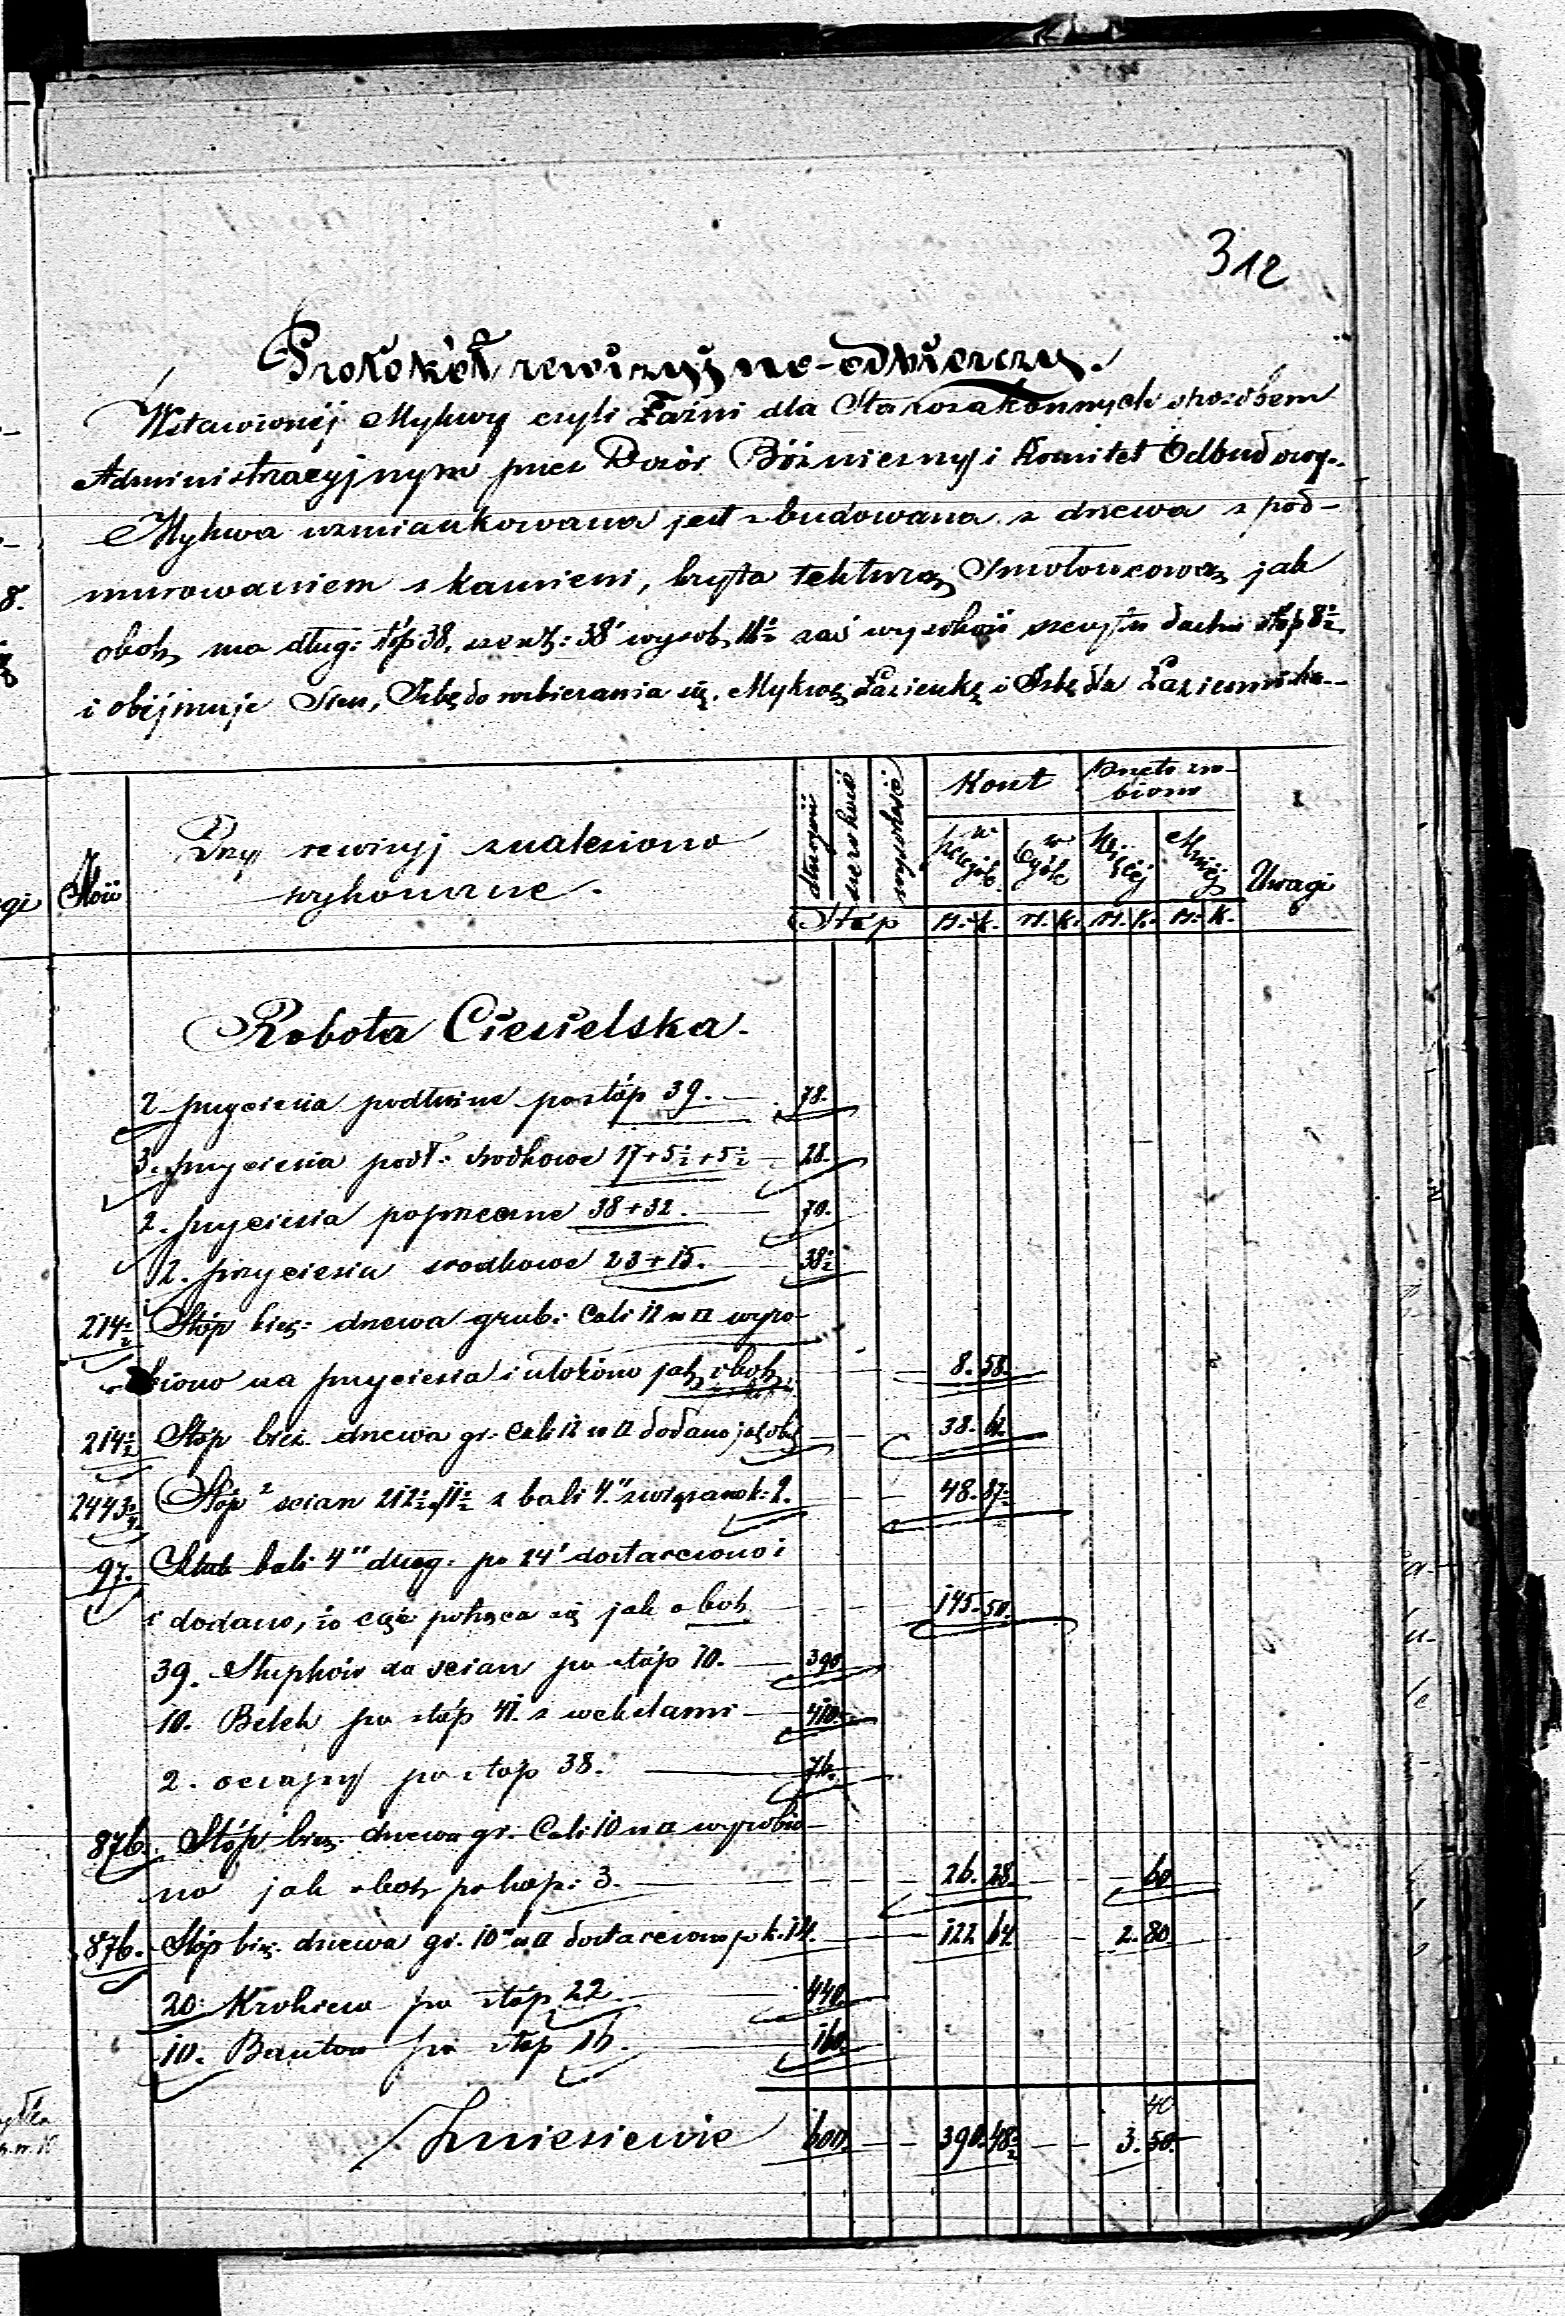 312
Protokół rewizyjno-odbierczy.
Wstawionéj Mykwy czyli Łaźni dla Starozakonnych sposobem
Administracyjnym przez Dozór Bóżniczny i Komitet Odbudowy.
Mykwa wzmiankowana jest zbudowana z drzewa z pod-
murowaniem z kamieni, kryta tekturą Smołowcową jak
obok, ma dług: stóp 38, szerok: 38' wysok 11½ zaś wysokość szczytu dachu stóp 8½
i obéjmuje Sień, Izbę do rozbierania się, Mykwę Łazienkę i Izbę dla Łaziennika
Ilość
Przy rewizyj znaleziono
wykonane.
długość
szerokość
wysokość
Stóp
Koszt
w szczególe
w ogóle
Przeto zro-
biono
Więcéj
Mniéj
Uwagi
R. k. R. k. R. k. R. K.
Robota Ciesielska.
2 przyciesia podłużne po stóp 39. 78.
3. przyciesia podł: srodkowe 17+5½+5½ 28.
2. przyciesia poprzeczne 38+32. 70.
2. przyciesia srodkowe 23+15. 38½
214½ Stóp bież: drzewa grub: Cali 12 w □ wyro-
biono na przyciesia i ułożono jak obok 8. 58.
214½ Stóp bież. drzewa gr. Cali 12 w □ dodano jak obok 38. 61.
2443¾ Stóp² scian 212½ 11½ z bali 4." związano k: 2. 48. 87½
97. Sztuk bali 4" dług: po 24' dostarczono i
i dodano, io cgé pokąca się jak obok 145. 50.
39. Słupków do scian po stóp 10. 390
10. Belek po stóp 41. z wekslami 410.
2. oczapy po stóp 38. 76.
876. Stóp bież. drzewa gr. Cali 10 w □ wyrobio-
no jak obok po kop: 3. 26. 28. 60
876. Stóp bież. drzewa gr. 10" w □ dostarczono po k. 14. 122. 64. 2. 80.
20. Krokiew po stóp 22. 440.
10. Bantow po stóp 16. 160.
Zniesiewie 600. 390. 48½ 3. 50.
40